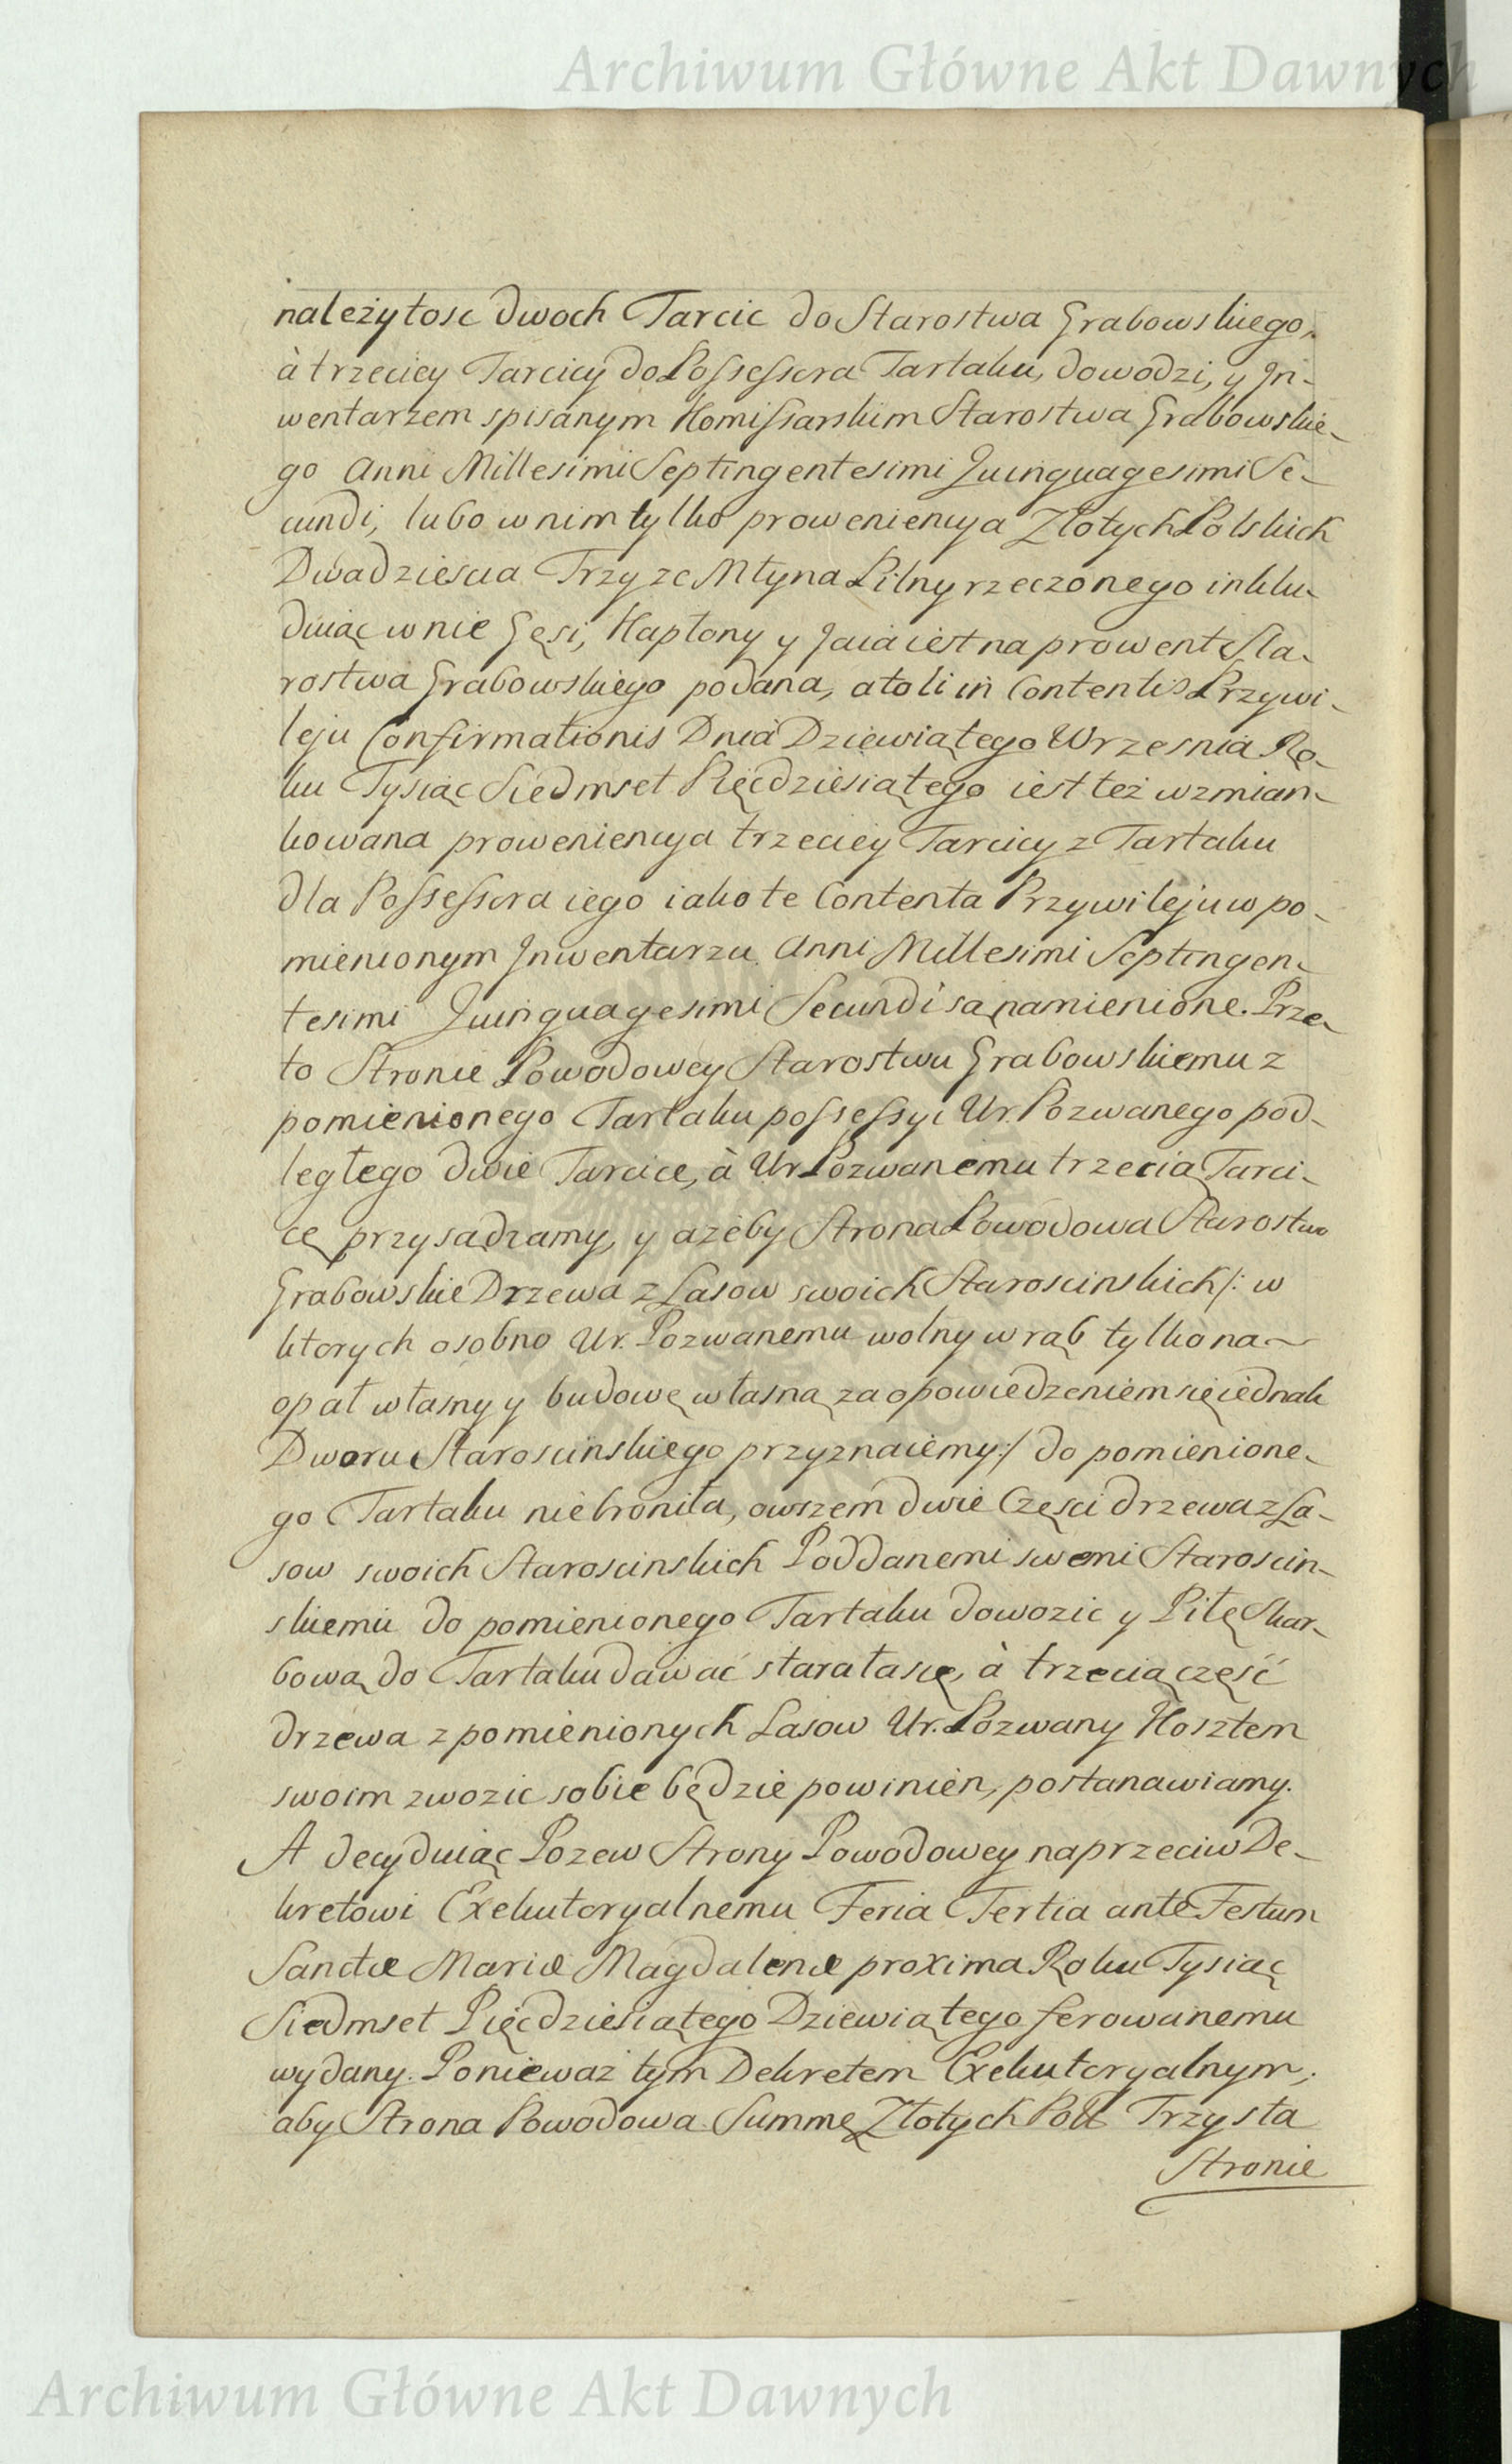 Archiwum Główne Akt Dawnych
należytosc dwoch Tarcic do Starostwa Grabowskiego,
à trzeciey Tarcicy do Possessora Tartaku, dowodzi, y In-
wentarzem spisanym Kommissarskim Starostwa Grabowskie-
go Anni Millesimi Septingentesimi Quinquagesimi Se-
cundi, lubo w nim tylko proweniencya Złotych Polskich
Dwadziescia Trzy ze Młyna Pilny rzeczonego inklu-
duiąc w nie Gęsi, Kapłony y Jaia iest na prowent Sta-
rostwa Grabowskiego podana, atoli in Contentis Przywi-
leju Confirmationis Dnia Dziewiątego Wrzesnia Ro-
ku Tysiąc Siedmset Pięcdziesiątego iest też wzmian-
kowana proweniencya trzeciey Tarcicy z Tartaku
dla Possessora iego iako te Contenta Przywileju w po-
mienionym Inwentarzu Anni Millesimi Septingen-
tesimi Quinquagesimi Secundi są namienione. Prze-
to Stronie Powodowey Starostwu Grabowskiemu z
pomienionego Tartaku possessyi Ur. Pozwanego pod-
ległego dwie Tarcice, à Ur. Pozwanemu trzecią Tarci-
cę przysądzamy, y ażeby Strona Powodowa Starostwo
Grabowskie Drzewa z Lasow swoich Staroscinskich /: w
ktorych osobno Ur. Pozwanemu wolny wrąb tylko na
opał własny y budowę własną za opowiedzeniem się iednak
Dworu Staroscinskiego przyznaiemy :/ do pomienione-
go Tartaku niebroniła, owszem dwie Częsci drzewa z La-
sow swoich Staroscinskich Poddanemi swemi Staroscin-
skiemi do pomienionego Tartaku dowozic y Piłę Skar-
bową do Tartaku dawać starała się, à trzecią część
drzewa z pomienionych Lasow Ur. Pozwany Kosztem
swoim zwozic sobie będzie powinien, postanawiamy.
A decyduiąc Pozew Strony Powodowey naprzeciw De-
kretowi Exekutoryalnemu Feria Tertia ante Festum
Sanctæ Mariæ Magdalenæ proxima Roku Tysiąc
Siedmset Pięcdziesiątego Dziewiątego ferowanemu
wydany. Ponieważ tym Dekretem Exekutoryalnym,
aby Strona Powodowa Summę Złotych Pol: Trzysta
Stronie
Archiwum Główne Akt Dawnych